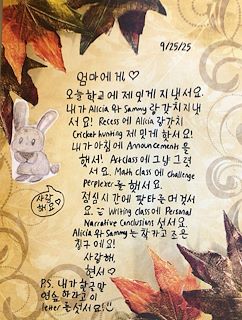 9/25/25
엄마에게 ♡
오늘 학교에 제밌게 지내서요.
내가 Alicia 와 Sammy 랑 같치 지내
서요! Recess에 Alicia 랑 같치
Cricket hunting 제밌게 하서요!
내가 아침에 Announcements를
해서! Art class에 그냥 그려
서요. Math class에 Challenge
Perplexer를 해서요.
점심시간에 파타를 머거서
요. 글 Writing class에 Personal
Narrative Conclusions 섯서요.
Alicia 와 Sammy는 착카고 조은
칭구에요!
사랑해,
현서♡
사랑
해요♡
P.S. 내가 한국말
연습 하라고 이
letter를 섯서요!